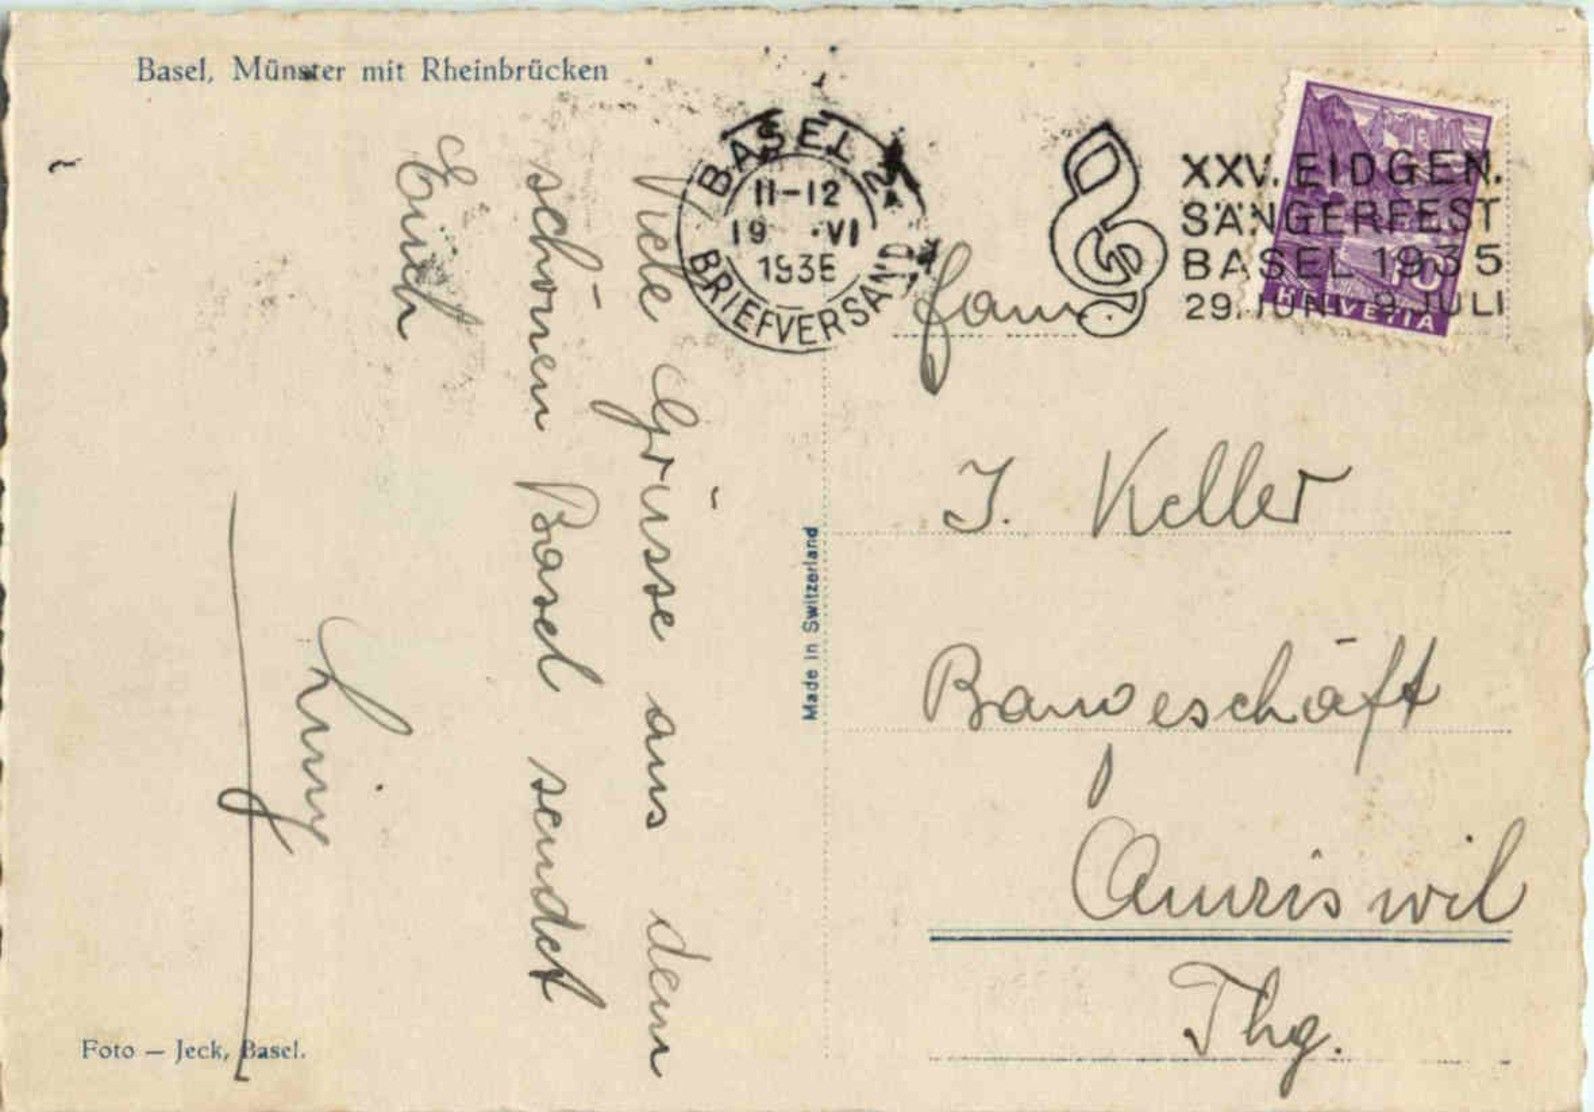 Basel, Münster mit Rheinbrücken
BASEL 2
11-12
19 · VI
1935
BRIEFVERSAND
XXV. EIDGEN.
SÄNGERFEST
BASEL 1935
29. JUNI - 9. JULI
10
HELVETIA
Viele Grüsse aus dem
schönen Basel sendet
Euch
Fam.
J. Keller
Baugeschäft
Amriswil
Thg.
Made in Switzerland
Foto — Jeck, Basel.